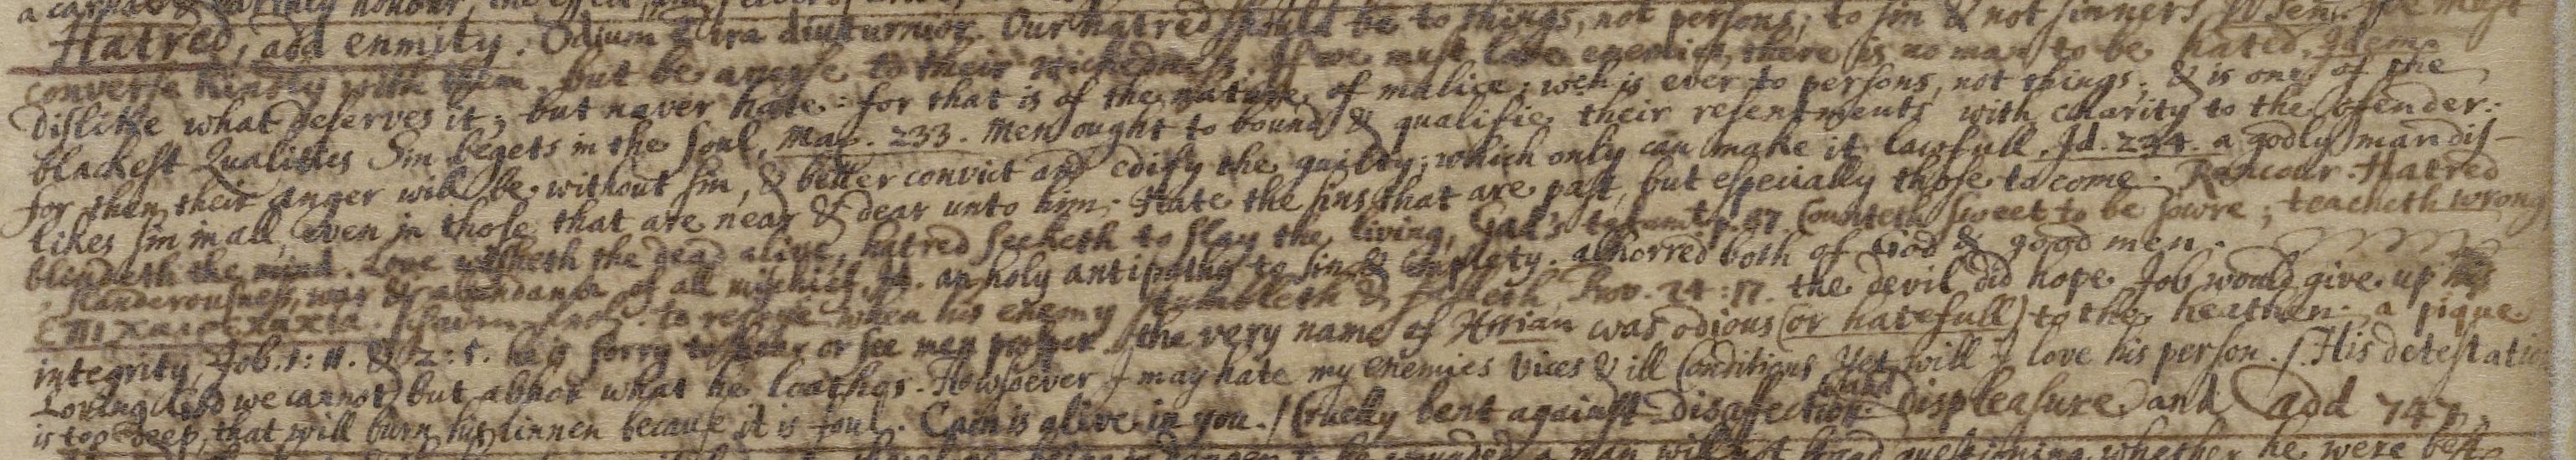 a carnal & earthly honour, the effect
Hatred, and enmity. Odium Ira diuturnior. Our hatred should be to things, not persons; to sin & not sinners, Wsen. We must
converse kindly with them, but be averse to their wickedness. If we must love enemies, there is no man to be hated. Idem.
dislike what deserves it; but never hate: for that is of the nature of malice; wch is ever to persons, not things; & is one of the
blackest Qualities Sin begets in the soul, Max. 233. Men ought to bound & qualifie their resentments with charity to the ofender:
for then their anger will be without sin, & better convict and edify the guilty; which only can make it lawfull. Id. 234. a godly man dis-
likes sin in all, even in those that are near & dear unto him. Hate the sins that are past, but especially those to come. Rancour. Hatred
blindeth the mind. Love wisheth the dead alive, hatred seeketh to slay the living, Gad's testamt. p. 57. Counteth sweet to be sowre; teacheth wrong
slanderousness, war & abundance of all mischief, Id. an holy antipathy to sin & impiety. abhorred both of God & good men.
Επιχαιρεκακια. to rejoyce when his enemy stumbleth & falleth, Prov. 24:17. the devil did hope Job would give up his
integrity, Job. 1: 11. & 2: 5. he is sorry to hear or see men prosper. the very name of was odious (or hatefull) to the heathen. a pique.
Loving God we cannot but abhor what he loathes. Howsoever I may hate my enemies vices & ill Conditions, yet will I love his person. / His detestation
is too deep, that will burn his linnen because it is foul. Cain is alive in you. / Cruelly bent against. Disaffection. displeasure and add 747.
a man will not stand questioning whether he were best